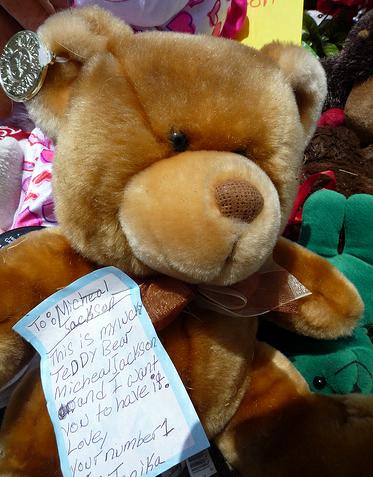 To: Micheal
Jackson
This is my luck
TeDDY Bear
MichealJackson
and I want
you to have it.
Love,
your number 1